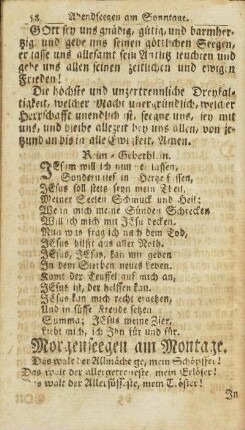 58 Abendseegen am Sonntage.
GOtt sey uns gnädig, gütig, und barmher-
tzig, und gebe uns seinen göttlichen Seegen,
er lasse uns allesamt sein Antlitz leuchten und
gebe uns allen seinen zeitlichen und ewigen
Frieden!
Die höchste und unzertrennliche Dreyfal-
tigkeit, welcher Macht unergründlich, welcher
Herrschafft unendlich ist, seegne uns, sey mit
uns, und bleibe allezeit bey uns allen, von je-
tzund an bis in alle Ewigkeit, Amen.
Reim-Gebethlein.
JEsum will ich nun lassen,
Sondern tief in Hertze fassen,
JEsus soll stets seyn mein Theil,
Meiner Seelen Schmuck und Heil;
Wo in mich meine Sünden Schrecken
Will ich mich mit JEsu decken.
Nun was frag ich nach dem Tod,
JEsus hilfft aus aller Noth.
JEsus, JEsus, kan mir geben
In dem Sterben neues Leben.
Komt der Teuffel auf mich an,
JEsus ist, der helffen kan.
JEsus kan mich recht ergetzen,
Und in süsse Freude setzen
Summa; JEsus meine Zier,
Liebt mich, ich Ihn für und für.
Morgenseegen am Montage.
Das walt der Allmächtige, mein Schöpfer!
Das walt der allergetreueste, mein Erlöser!
Das walt der Allersüsseste, mein Tröster!
In